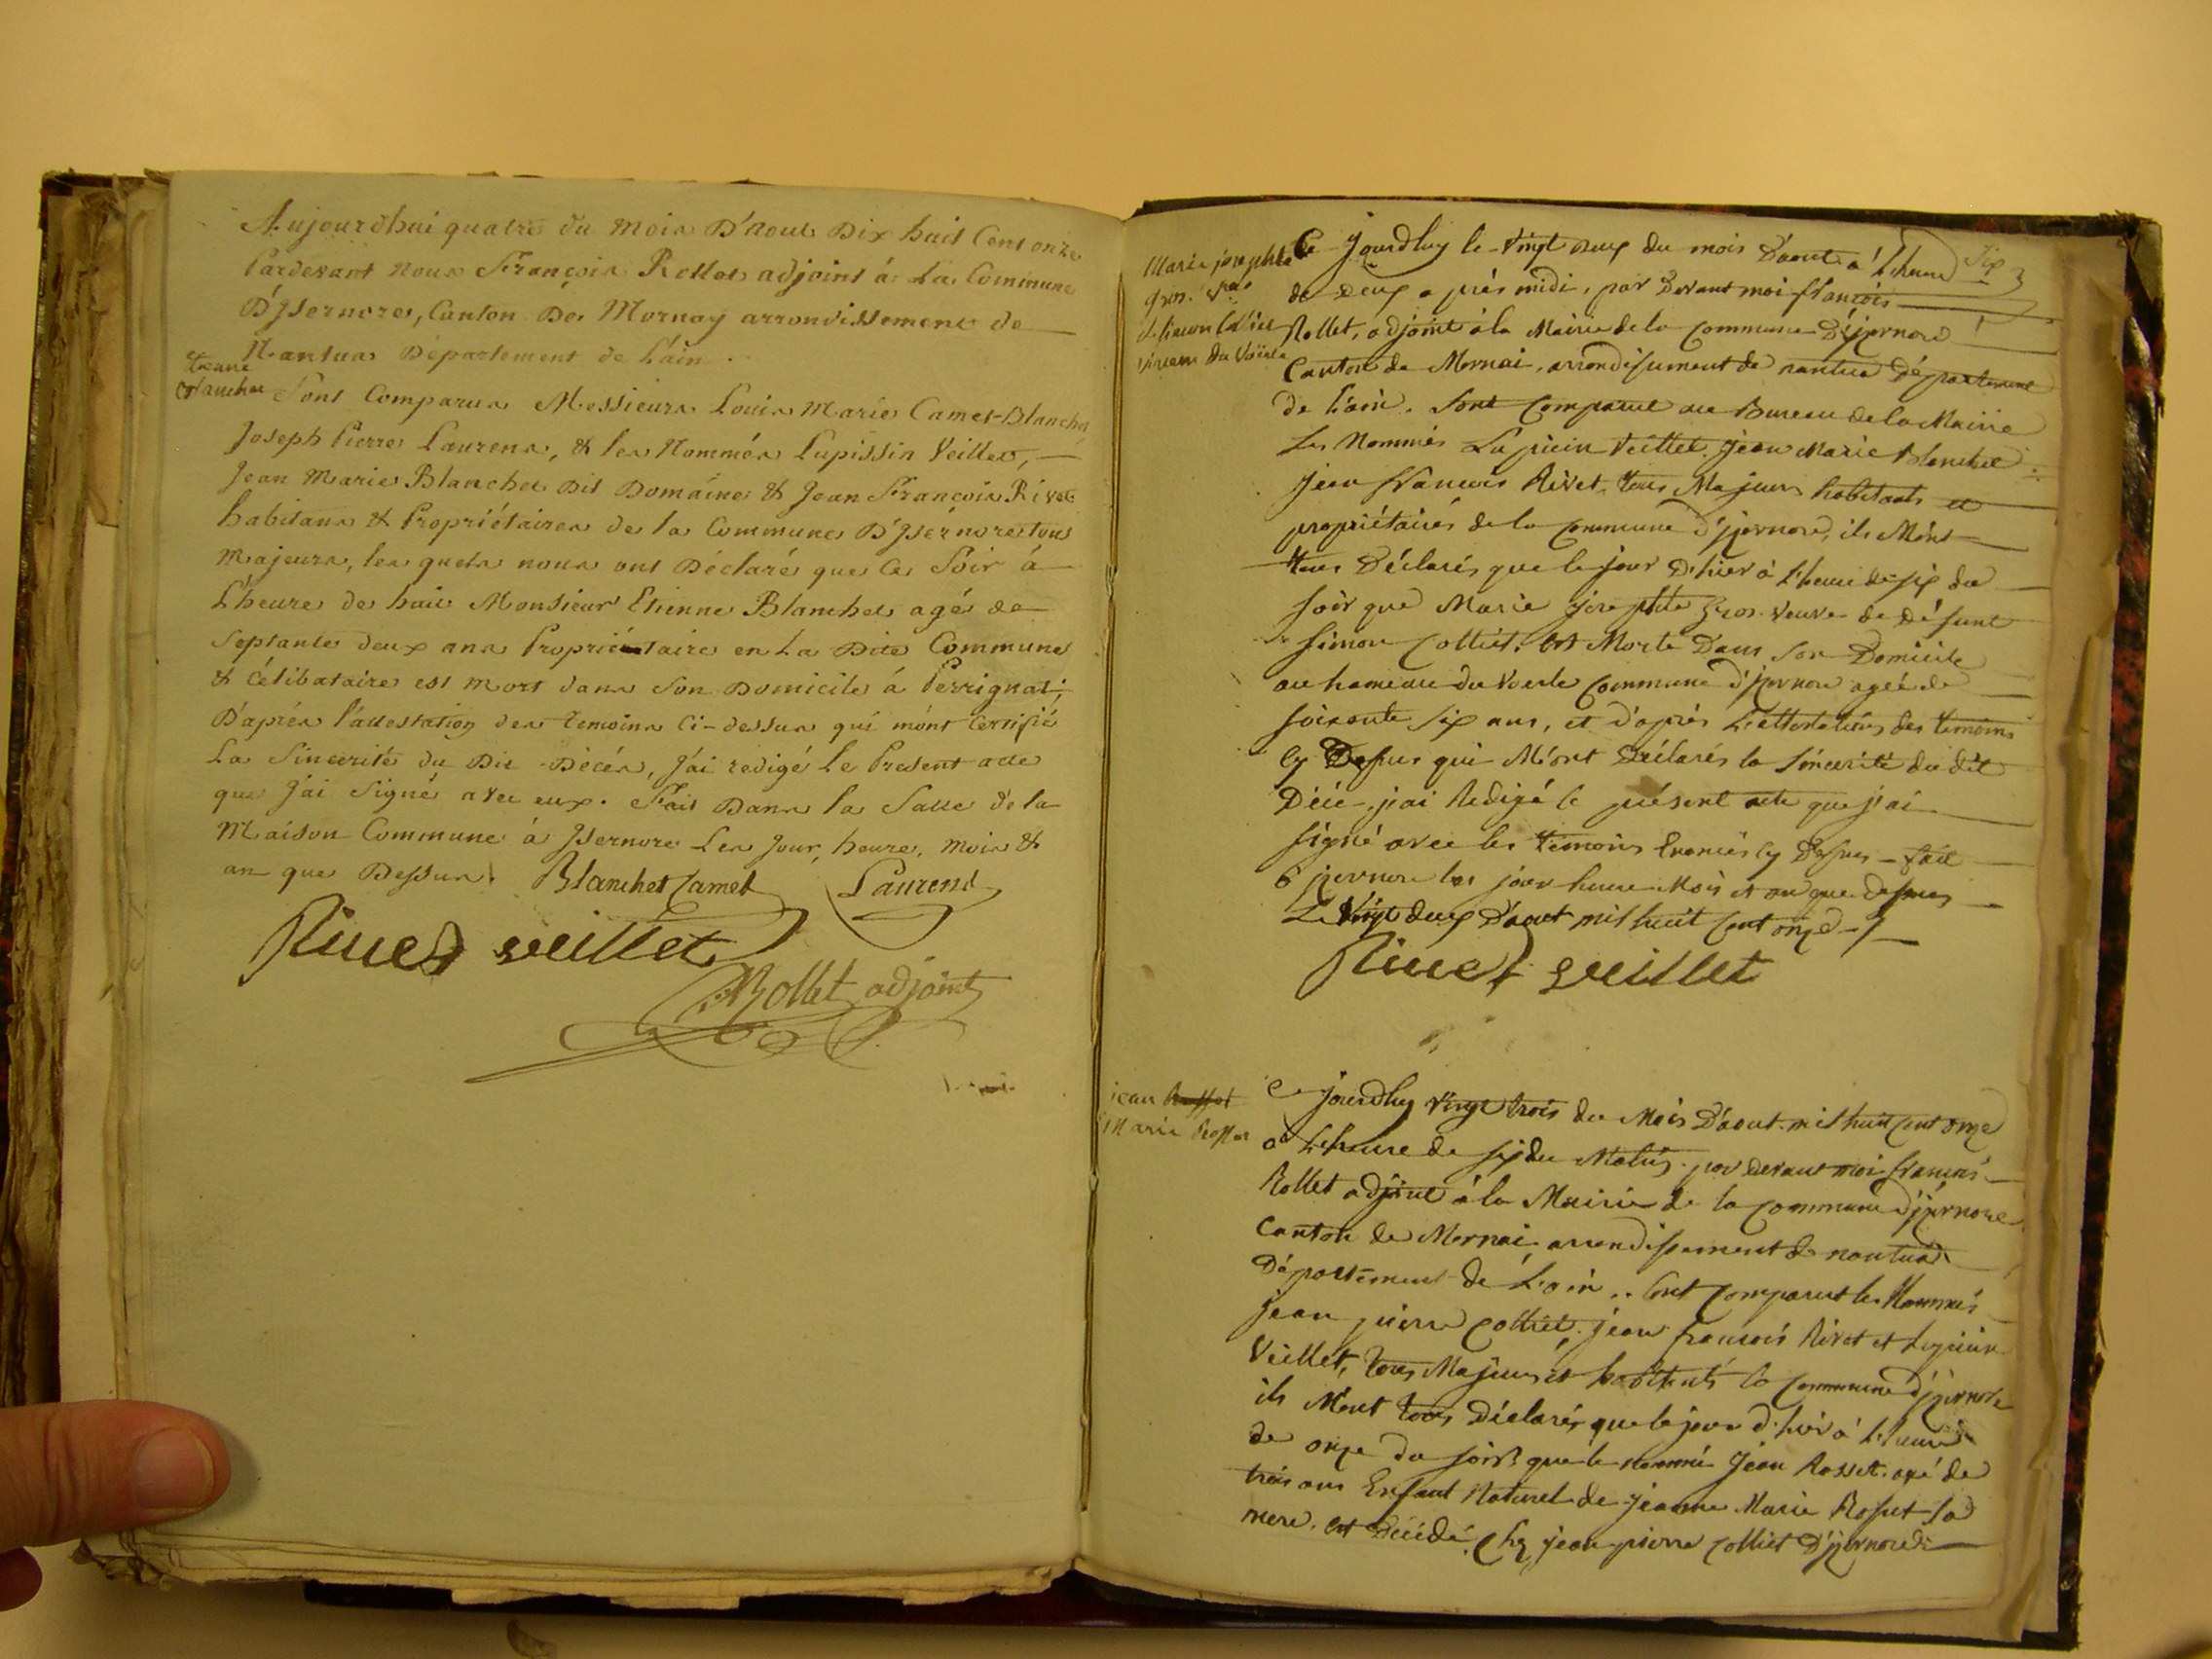 Aujourdhui quatre du mois D'Aout Dix huit Cent onze
Pardevant nous François Rollet adjoint à La Commune
D'Ysernore, Canton De Mornay arrondissement de
Nantua Département de Lain.
Etienne
Blanchet
Sont Comparus Messieurs Louis Marie Camet-Blanchet
Joseph Pierre Laurens, & les Nommés Lupissin Veillet,
Jean Marie Blanchet Dit Domaine & Jean François Rivet
habitans & Propriétaires de la Commune D'Ysérnore tous
Majeurs, les quels nous ont Déclaré que Ce Soir à
L'heure de huit Monsieur Etienne Blanchet agé de
Septante deux ans Propriétaire en La Dite Commune
& célibataire est mort dans Son Domicile à Perrignat;
D'après l'attestation des temoins Ci-dessus qui m'ont Certifié
La Sincerité du Dit Décés, J'ai redigé Le Present acte
que J'ai Signé avec eux. Fait Dans la Salle de la
Maison Commune à Jsernore Les Jour, heure, mois &
an que Dessus. Blanchet Camet Laurens
Rivet veillet
Rollet adjoint
Marie josephte
gros. Vve
de simon Colliet
hameau du Voërle
Ce Jourdhuy le vingt deux du mois D'aout à L'heure
de Deux après midi, par Devant moi françois
Rollet, adjoint à la Mairie de la commune D'Yzernore
Canton de Mornai, arrondissement de nantua Département
de L'ain. Sont Comparut au Bureau de la Mairie
Les Nommés Lupicin Veillet, Jean Marie Blanchet
Jean françois Rivet, tous Majeurs habitants et
propriétaires de la commune d'yzernore, ils M'ont
tous Déclarés que le jour D'hier à L'heure de six du
soir que Marie Josephte Gros veuve de Défunt
Simon Colliet. est Morte Dans son Domicile
au hameau du Voerle Commune d'yzernore ageé de
soixante six ans, et d'après L'attestation des temoins
Cy Dessus qui M'ont Déclarés la sincerité du dit
Décé, j'ai Redigé le présent acte que j'ai
signé avec les temoins Enoncés Cy Dessus - fait
à yzernore les jour heure Mois et an que dessus
Le vingt deux D'aout mil huit Cent onze
Rivet veillet
jean Rosset
Marie Rosset
Ce jourdhuy vingt trois du Mois D'aout mil huit Cent onze
à L'heure de six du Matin. par devant moi françois
Rollet adjoint à la Mairie de la commune d'yzernore
Canton de Mornai arrondissement de nantua
Département de L'ain.. Sont Comparut les Nommés
Jean pierre Colliet. jean françois Rivet et Lupicin
Veillet, tous Majeurs et habitants la Commune d'yzernore
ils M'ont tous Déclarés que le jour d'hier à L'heure
de onze du soir que le nommé Jean Rosset. agé de
trois ans Enfant Naturel de Jeanne Marie Rosset sa
mere. est Décédé. Chez jean pierre Colliet D'yzernore